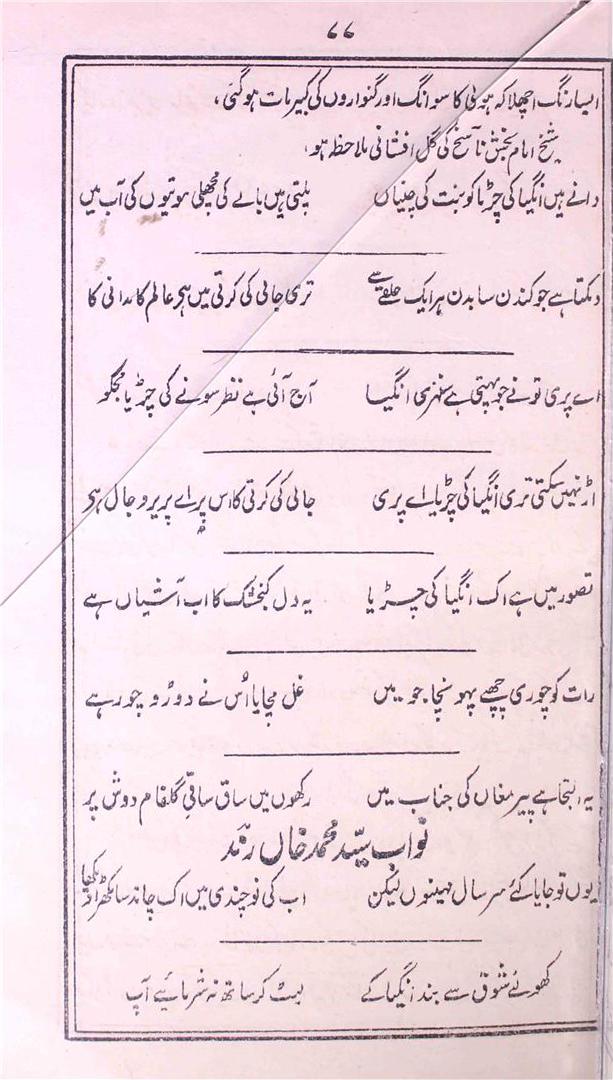 ۷۷
ایسا رنگ اچھلا کہ ہولی کا سوانگ اور گنواروں کی کبیر مات ہو گئی ،
شیخ امام بخش ناسخ کی گل افشانی ملاحظہ ہو ،
دانے ہیں انگیا کی چڑیا کو بنت کی چنیاں پلتی ہیں بالے کی مچھلی موتیوں کی آب میں
دمکتا ہے جو کندن سا بدن ہر ایک حلقے سے تری جالی کی کرتی میں ہی عالم کا مدانی کا
اے پری تو نے جو پہنی ہے سنہری انگیا آج آئی ہے نظر سونے کی چڑیا مجکو
اڑ نہیں سکتی تری انگیا کی چڑیا اے پری جالی کی کرتی کا اس پر اے پریرو جال ہی
تصور میں ہے اک انگیا کی چڑیا یہ دل کنجشک کا اب آشیاں ہے
رات کو چوری چھپے پہونچا جو میں غل مچایا اُس نے دوڑو چور ہے
یہ التجا ہے پیر مغاں کی جناب میں رکھوں میں ساق ساقیِ گلفام دوش پر
نواب سیّد محمد خاں رند
یوں تو جایا کئے سر سال مہینوں لیکن اب کی نوچندی میں اک چاند سا مکھڑا دیکھا
کھولئے شوق سے بند انگیا کے لپٹ کر ساتھ نہ شرمائیے آپ